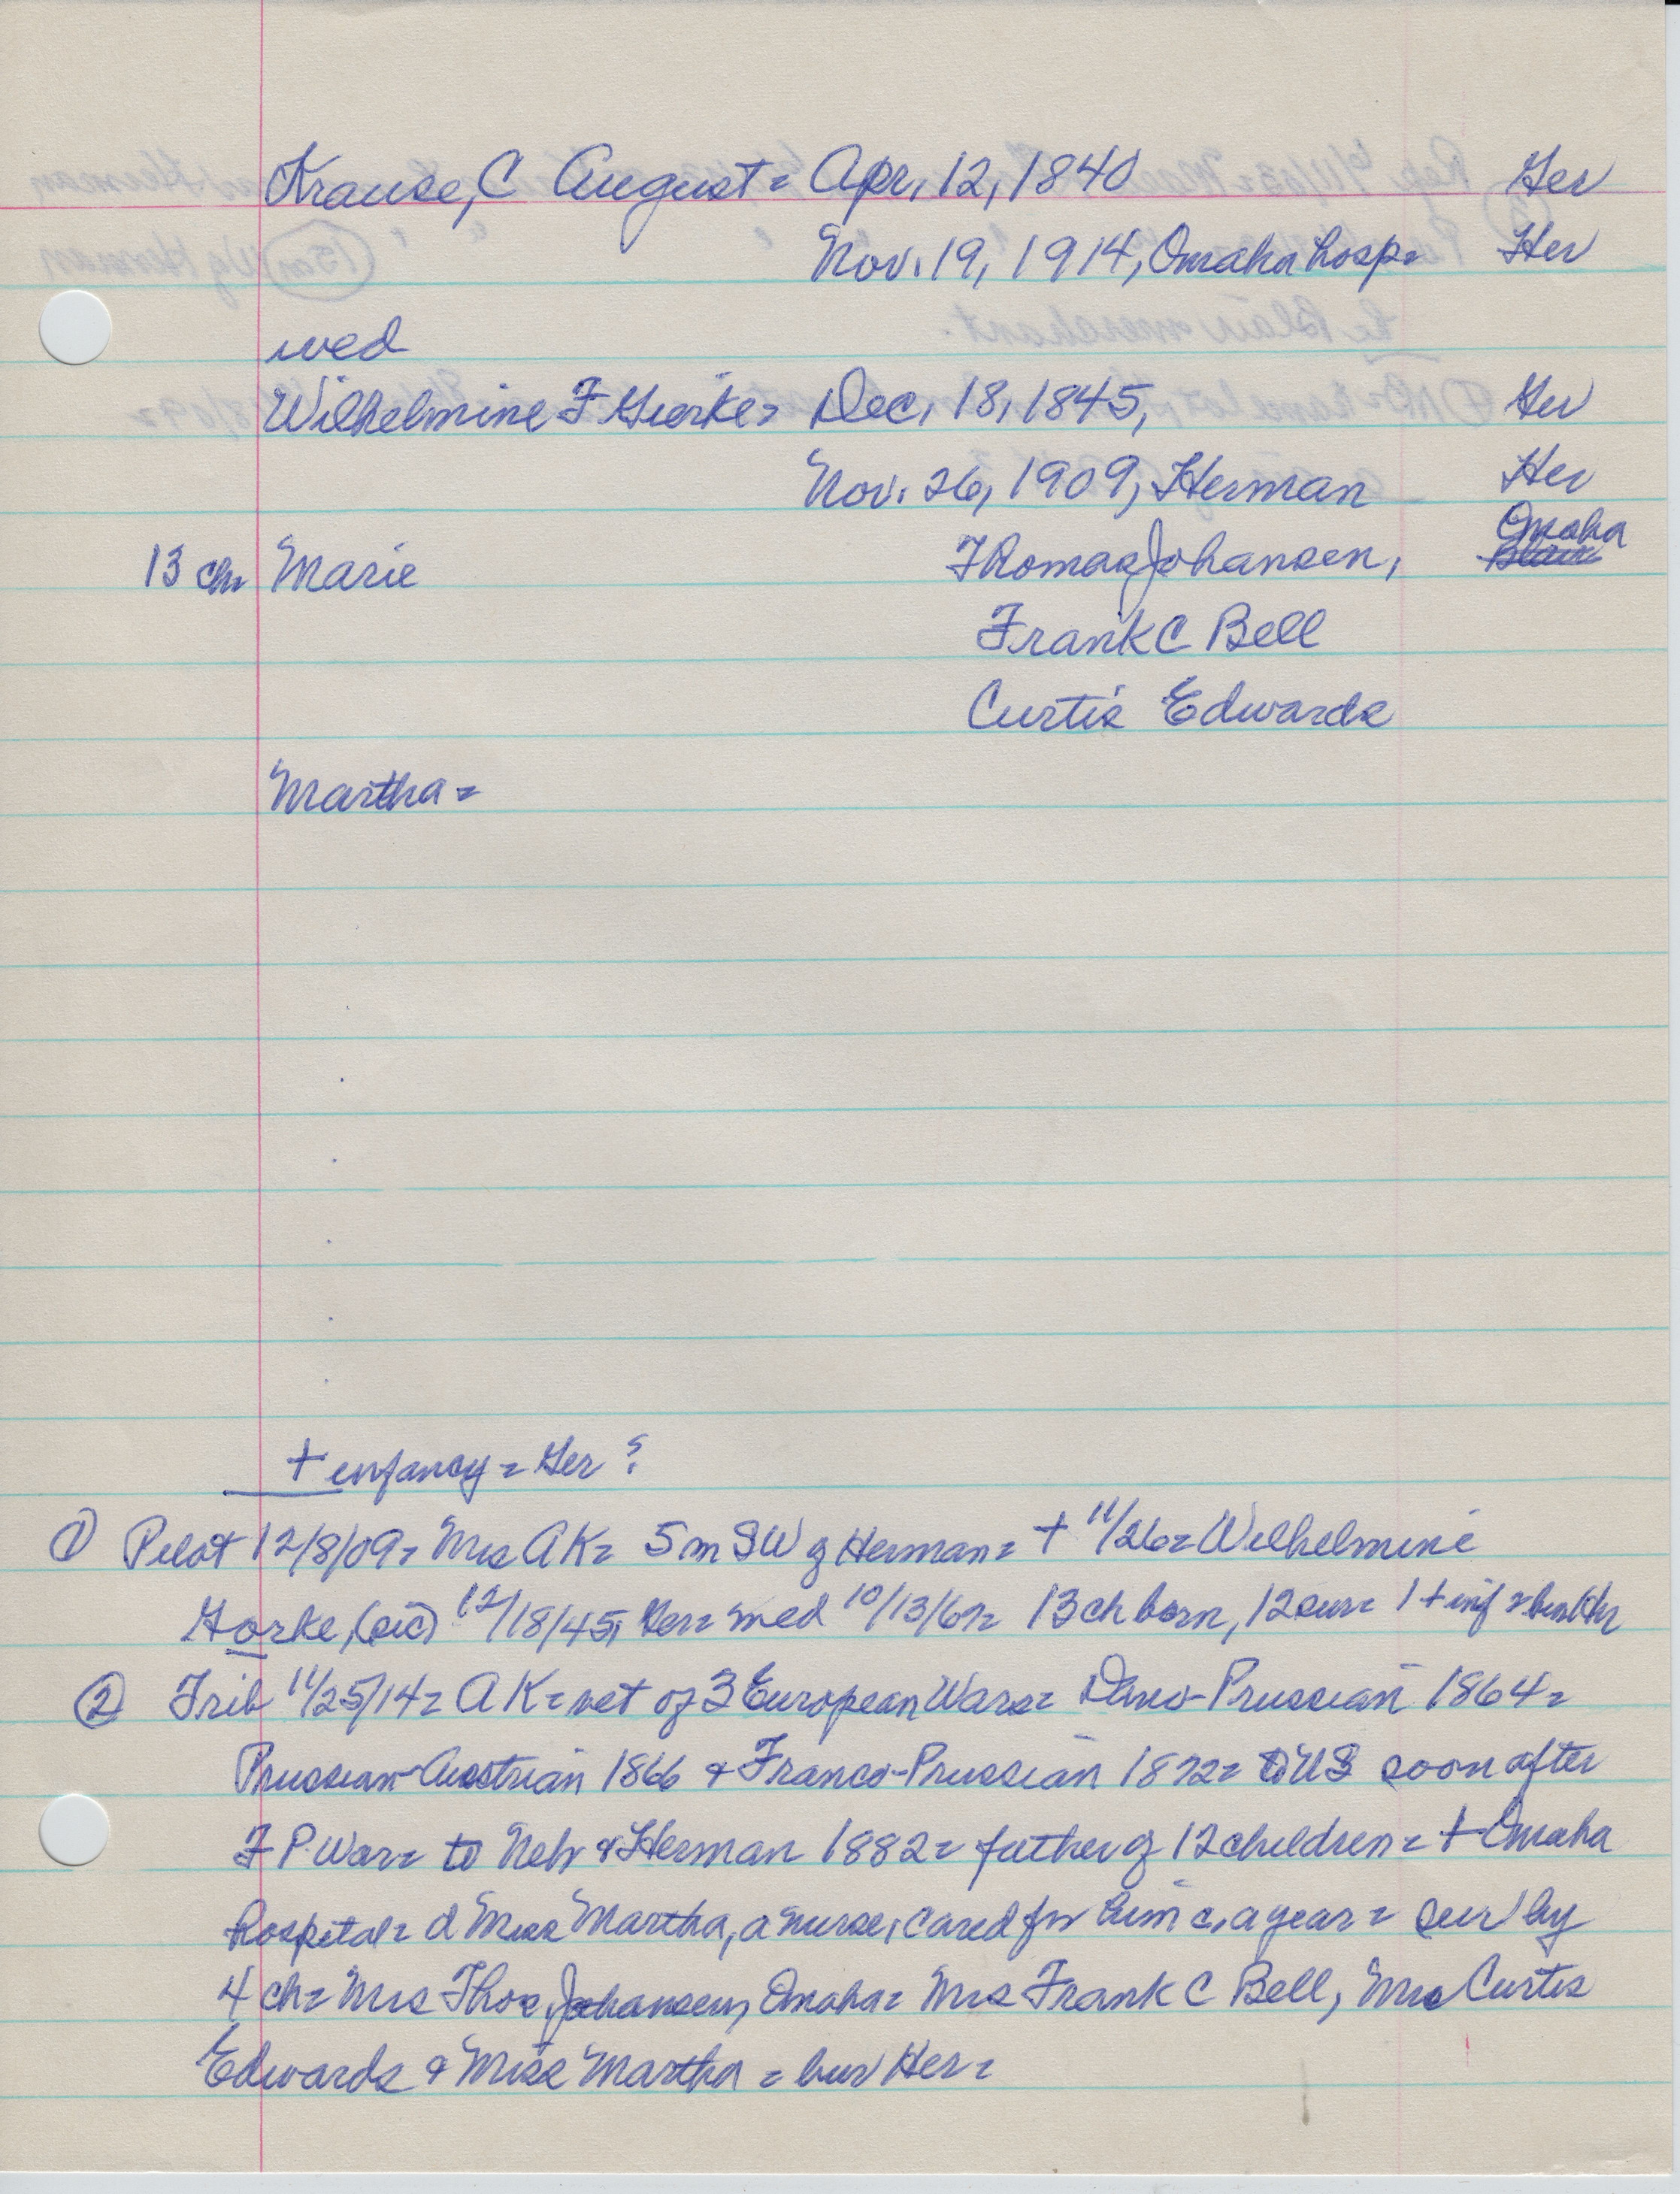 Krause, C August = Apr. 12, 1840 Ger
Nov. 19, 1914, Omaha hosp = Her
wed
Wilhelmine F Gierke = Dec. 18, 1845, Ger
Nov. 26, 1909, Herman Her
13 ch = Marie Thomas Johansen, Omaha
Blair
Frank C Bell
Curtis Edwards
Martha =
+ infancy = Ger ?
① Pilot 12/8/09 = Mrs A K = 5 m SW of Herman = + 11/26 = Wilhelmine
Gorke, (sic) 12/18/45, Ger = med 10/13/67 = 13 ch born, 12 sur = 1 + inf =
② Trib 11/25/14 = A K = vet of 3 European Wars = Dano-Prussian 1864 =
Prussian-Austrian 1866 & Franco-Prussian 1872 = to US soon after
F P War = to Neb & Herman 1882 = father of 12 children = + Omaha
hospital = d Miss Martha, a nurse, cared for him c. a year = sur by
4 ch = Mrs Thos Johansen, Omaha = Mrs Frank C Bell, Mrs Curtis
Edwards & Miss Martha = bur Her =